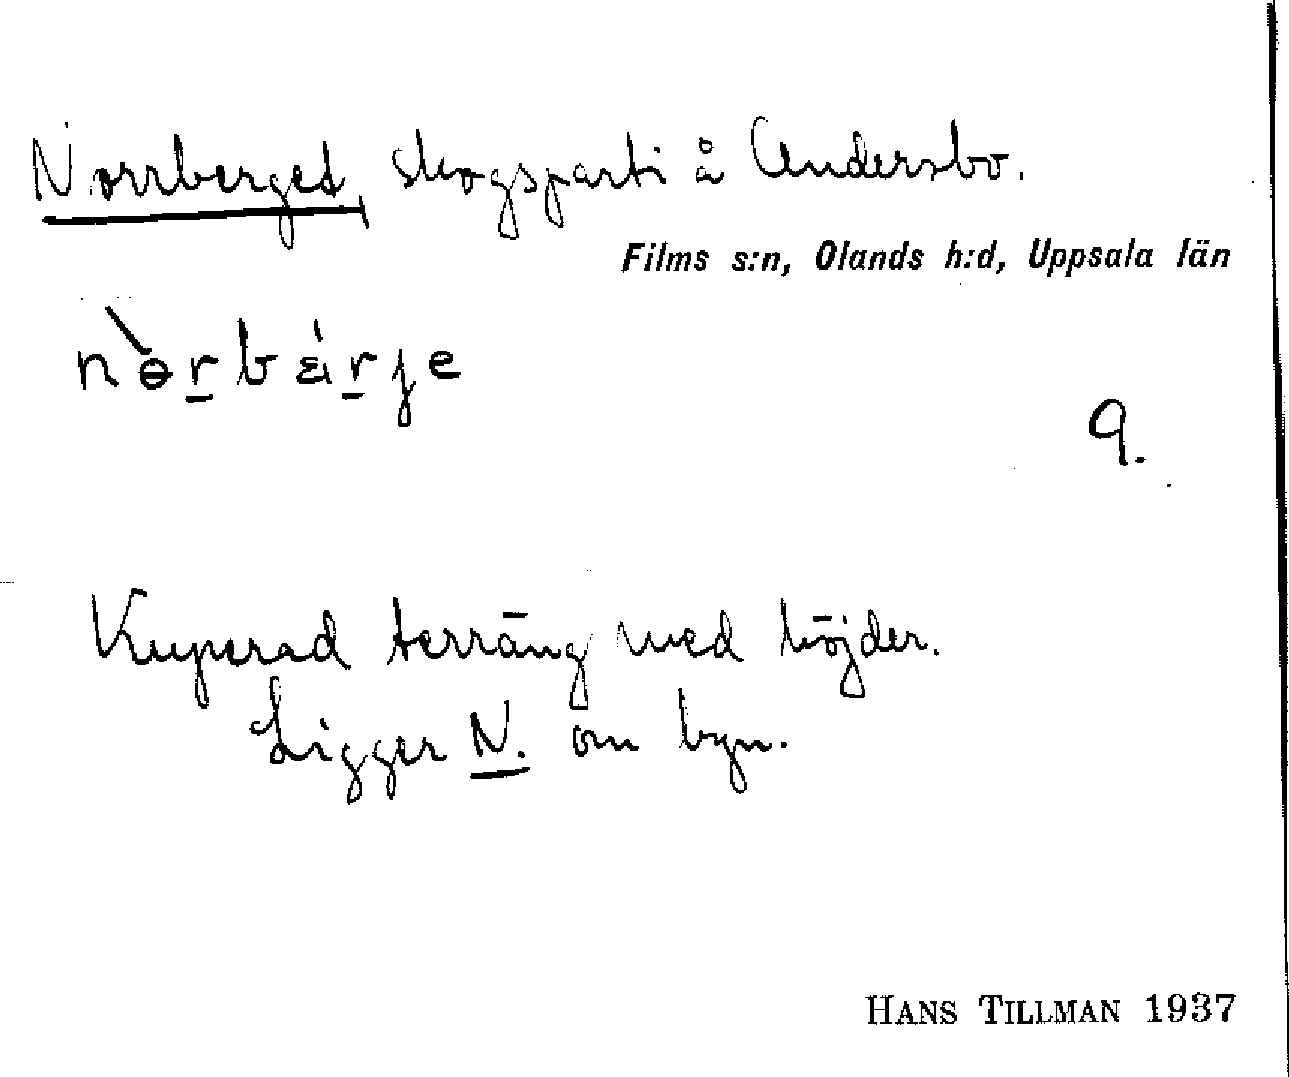 Norrberget, skogsparti å Andersbo.
Films s:n, Olands h:d, Uppsala län
nɵ̀rbærje
9.
Kuperad terräng med höjder.
Ligger N. om byn.
HANS TILLMAN 1937